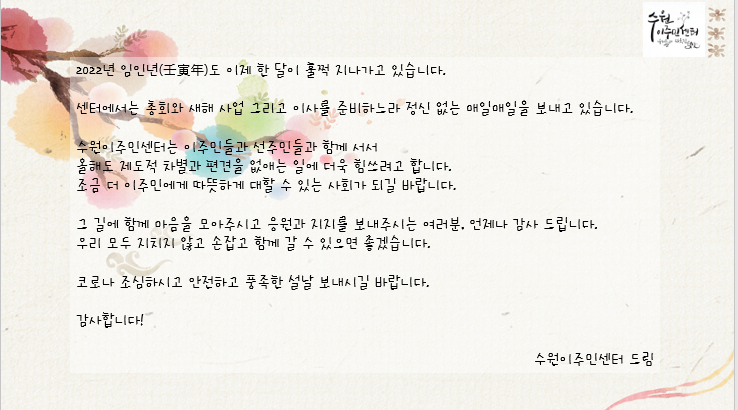 수원
이주민센터
2022년 임인년(壬寅年)도 이제 한 달이 훌쩍 지나가고 있습니다.
센터에서는 총회와 새해 사업 그리고 이사를 준비하느라 정신 없는 매일매일을 보내고 있습니다.
수원이주민센터는 이주민들과 선주민들과 함께 서서
올해도 제도적 차별과 편견을 없애는 일에 더욱 힘쓰려고 합니다.
조금 더 이주민에게 따뜻하게 대할 수 있는 사회가 되길 바랍니다.
그 길에 함께 마음을 모아주시고 응원과 지지를 보내주시는 여러분, 언제나 감사 드립니다.
우리 모두 지치지 않고 손잡고 함께 갈 수 있으면 좋겠습니다.
코로나 조심하시고 안전하고 풍족한 설날 보내시길 바랍니다.
감사합니다!
수원이주민센터 드림